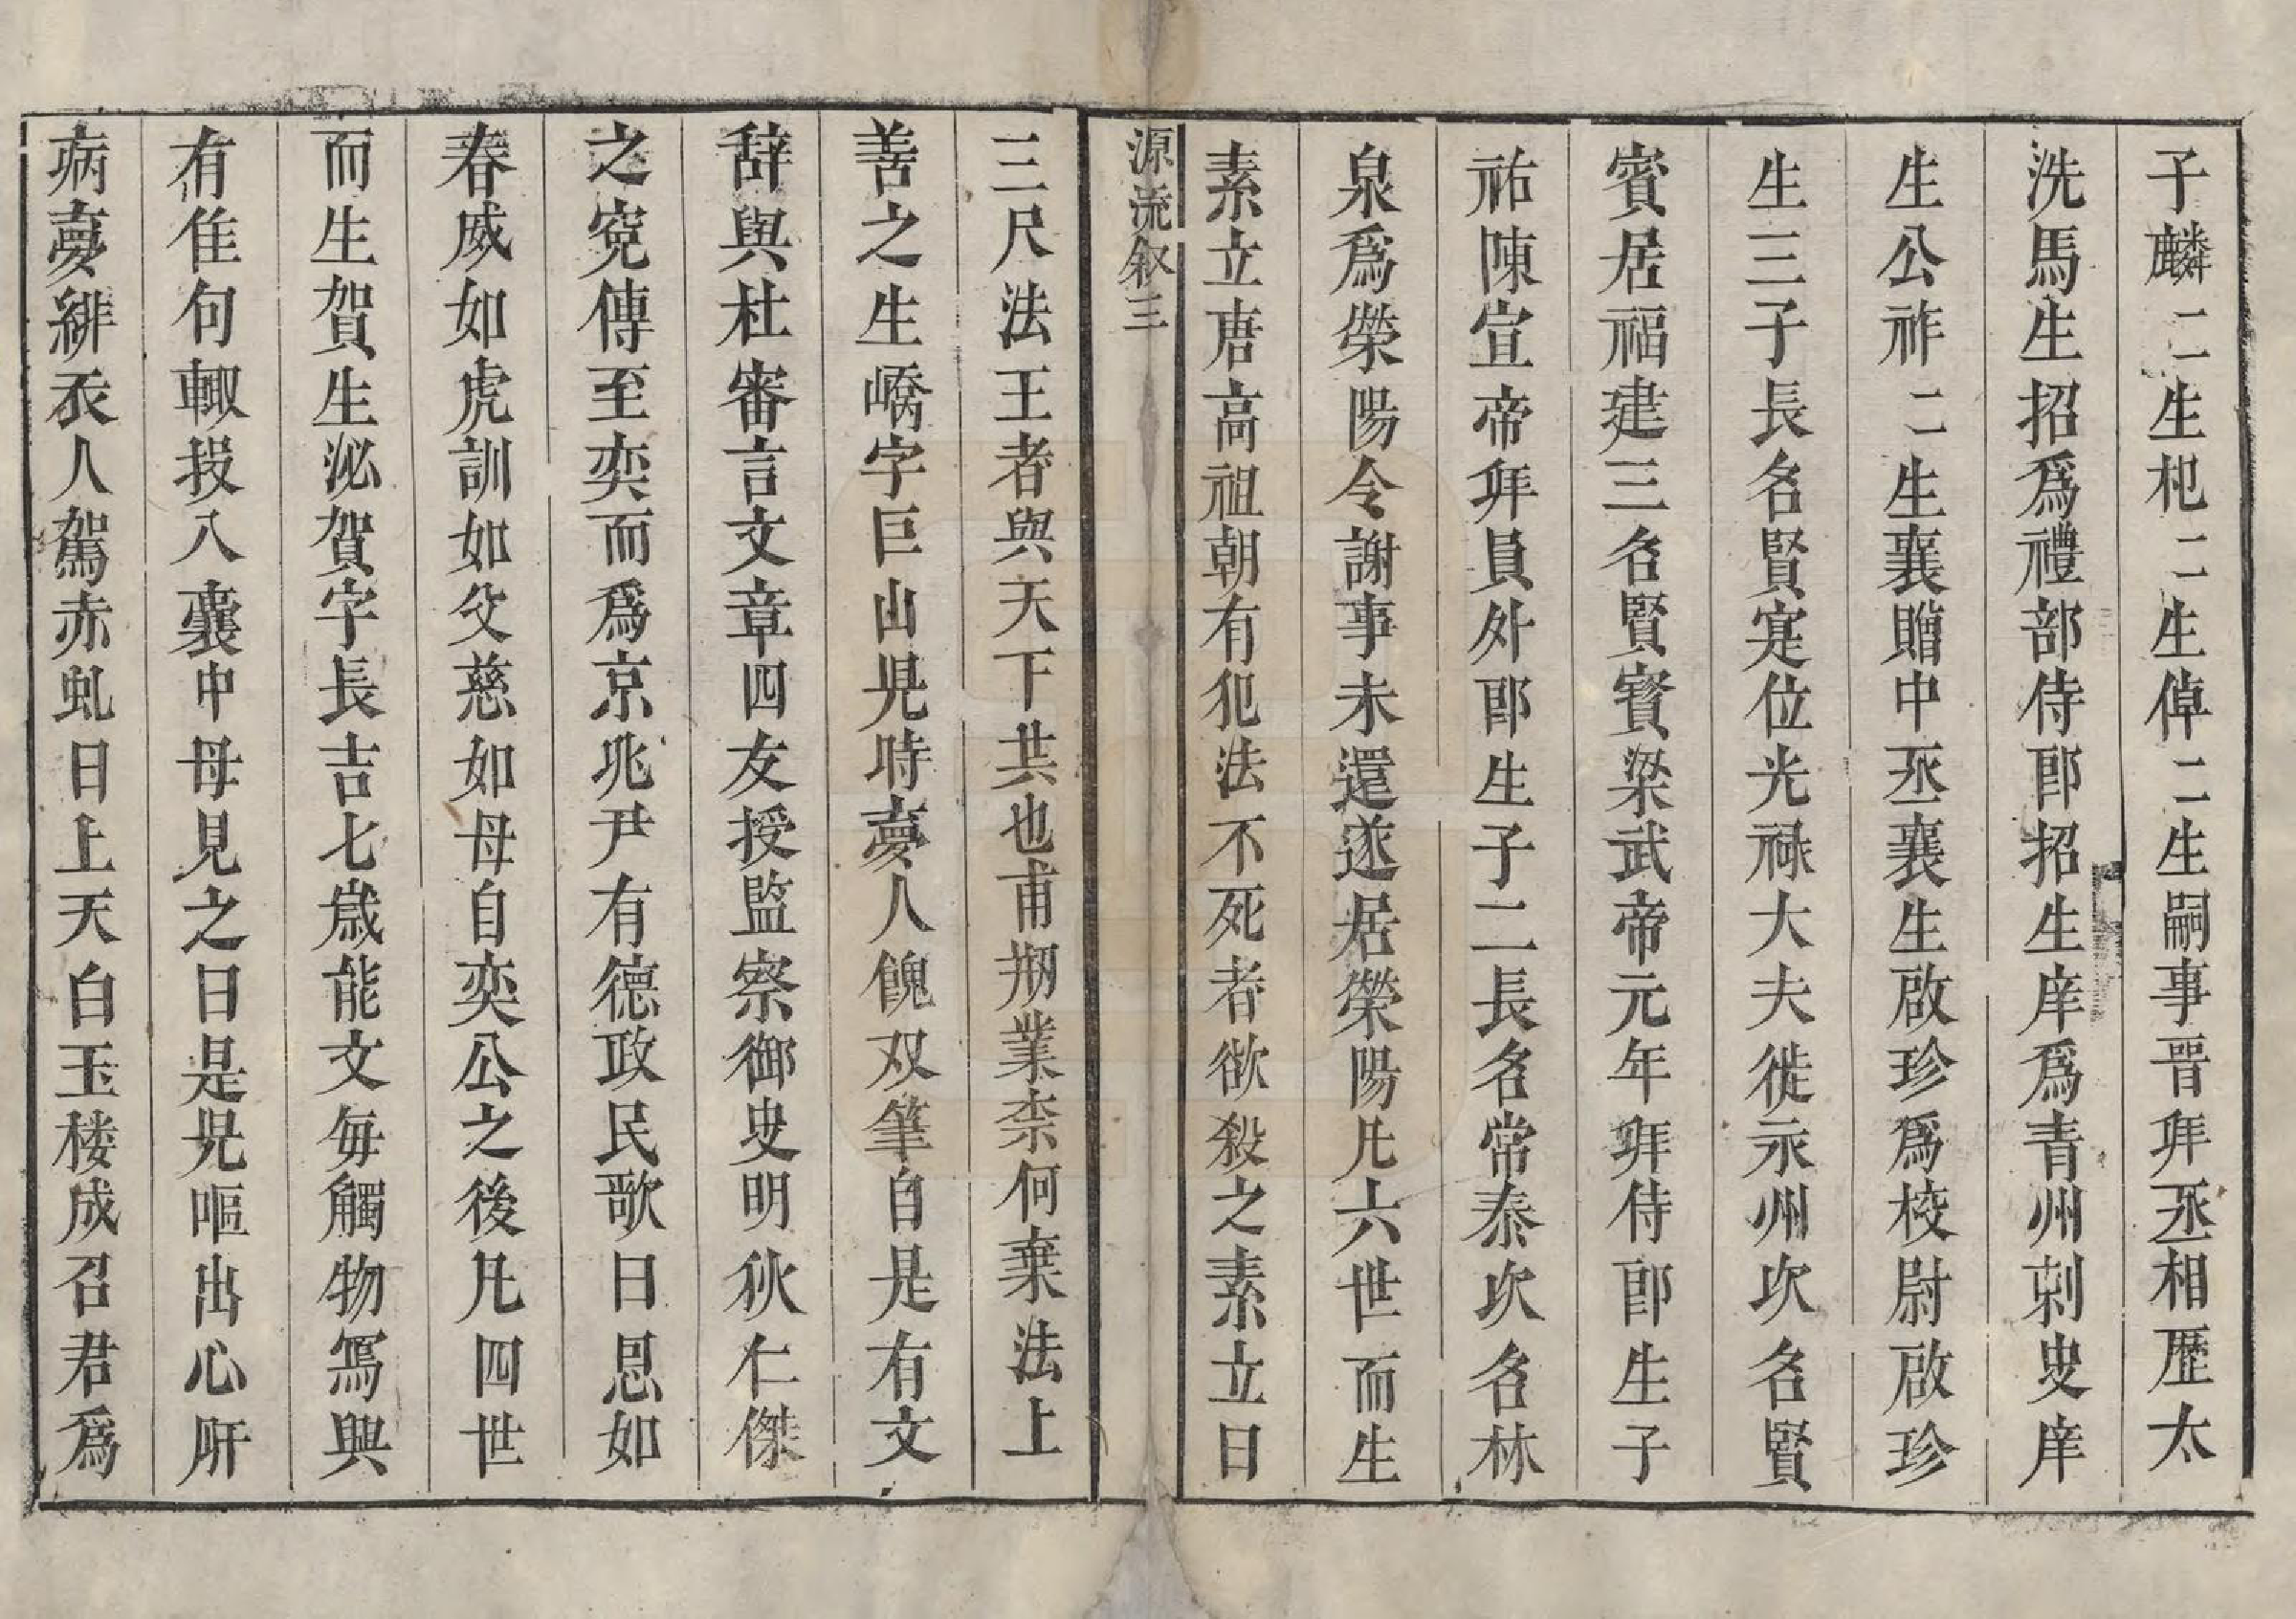 子麟二生杞二生倬二生嗣事晋拜丞相歷太
洗馬生招爲禮部侍郎招生庠爲青州刺史庠
生公祚二生襄贈中丞襄生啟珍爲校尉啟珍
生三子長名賢寔位光禄大夫徙永州次名賢
賓居福建三名賢寳梁武帝元年拜侍郎生子
祐陳宣帝拜員外郎生子二長名常泰次名林
泉爲榮陽令謝事未還遂居榮陽凡六世而生
素立唐高祖朝有犯法不死者欲殺之素立曰
源流叙三
三尺法王者與天下共也甫剏業柰何棄法上
善之生嶠字巨山児時夢人餽双筆自是有文
辞與杜審言文章四友授監察御史明狄仁傑
之寃傳至奕而爲京兆尹有德政民歌曰恩如
春威如虎訓如父慈如母自奕公之後凡四世
而生賀生泌賀字長吉七歲能文每觸物寫興
有佳句輙投入囊中母見之曰是児嘔出心肝
病夢緋衣人駕赤虬日上天白玉楼成召君爲